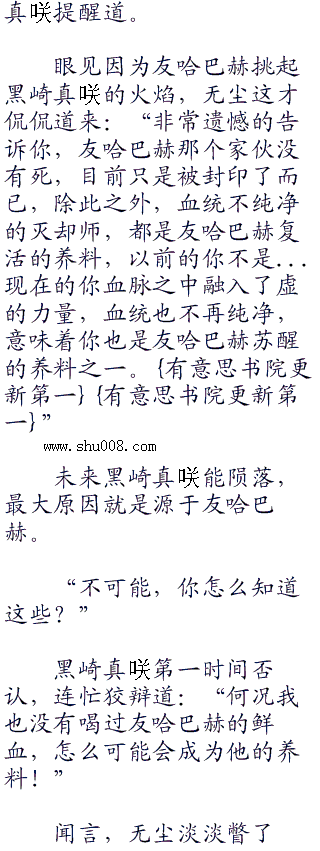 真咲提醒道。
眼见因为友哈巴赫挑起
黑崎真咲的火焰，无尘这才
侃侃道来：“非常遗憾的告
诉你，友哈巴赫那个家伙没
有死，目前只是被封印了而
已，除此之外，血统不纯净
的灭却师，都是友哈巴赫复
活的养料，以前的你不是...
现在的你血脉之中融入了虚
的力量，血统也不再纯净，
意味着你也是友哈巴赫苏醒
的养料之一。{有意思书院更
新第一}{有意思书院更新第
一}”
www.shu008.com
未来黑崎真咲能陨落，
最大原因就是源于友哈巴
赫。
“不可能，你怎么知道
这些？”
黑崎真咲第一时间否
认，连忙狡辩道：“何况我
也没有喝过友哈巴赫的鲜
血，怎么可能会成为他的养
料！”
闻言，无尘淡淡瞥了